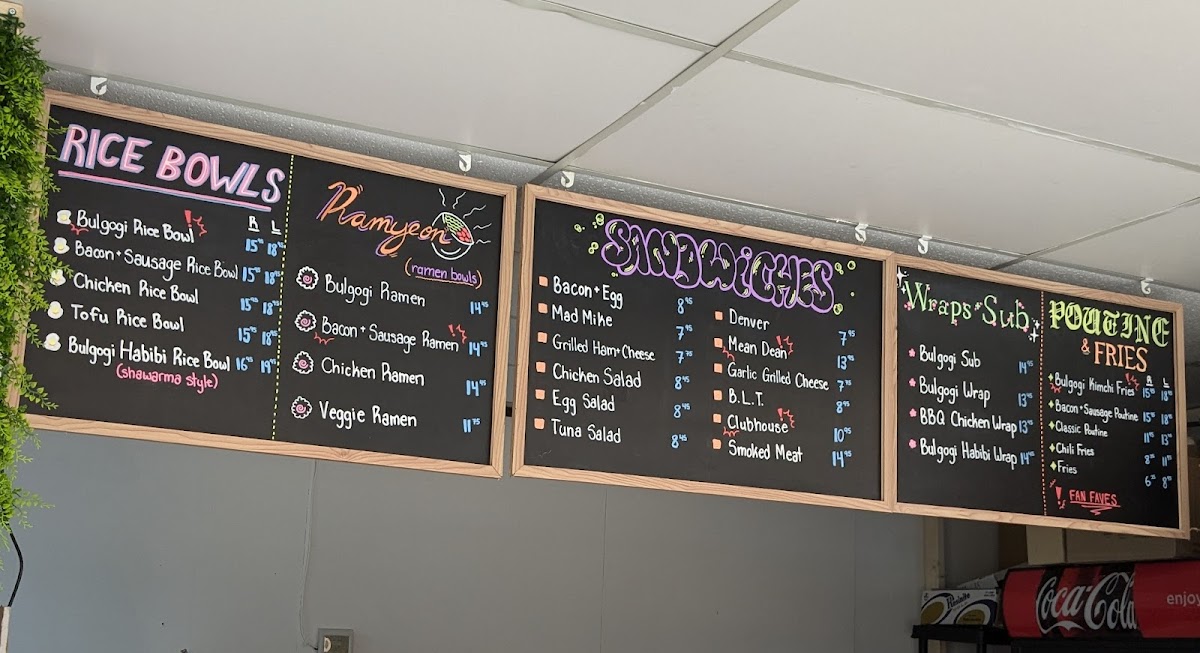 RICE BOWLS
R L
Bulgogi Rice Bowl 15⁹⁵ 18⁹⁵
Bacon + Sausage Rice Bowl 15⁹⁵ 18⁹⁵
Chicken Rice Bowl 15⁹⁵ 18⁹⁵
Tofu Rice Bowl 15⁹⁵ 18⁹⁵
Bulgogi Habibi Rice Bowl 16⁹⁵ 19⁹⁵
(shawarma style)
Ramyeon
(ramen bowls)
Bulgogi Ramen 14⁹⁵
Bacon + Sausage Ramen 14⁹⁵
Chicken Ramen 14⁹⁵
Veggie Ramen 11⁹⁵
SANDWICHES
Bacon + Egg 8⁹⁵
Mad Mike 7⁹⁵
Grilled Ham + Cheese 7⁹⁵
Chicken Salad 8⁹⁵
Egg Salad 8⁹⁵
Tuna Salad 8⁹⁵
Denver 7⁹⁵
Mean Dean 13⁹⁵
Garlic Grilled Cheese 7⁹⁵
B.L.T. 8⁹⁵
Clubhouse 10⁹⁵
Smoked Meat 14⁹⁵
Wraps + Sub
Bulgogi Sub 14⁹⁵
Bulgogi Wrap 13⁹⁵
BBQ Chicken Wrap 13⁹⁵
Bulgogi Habibi Wrap 14⁹⁵
POUTINE
& FRIES
R L
Bulgogi Kimchi Fries 15⁹⁵ 18⁹⁵
Bacon + Sausage Poutine 15⁹⁵ 18⁹⁵
Classic Poutine 11⁹⁵ 13⁹⁵
Chili Fries 8⁹⁵ 11⁹⁵
Fries 6⁹⁵ 8⁹⁵
! FAN FAVES
Coca-Cola
enjoy